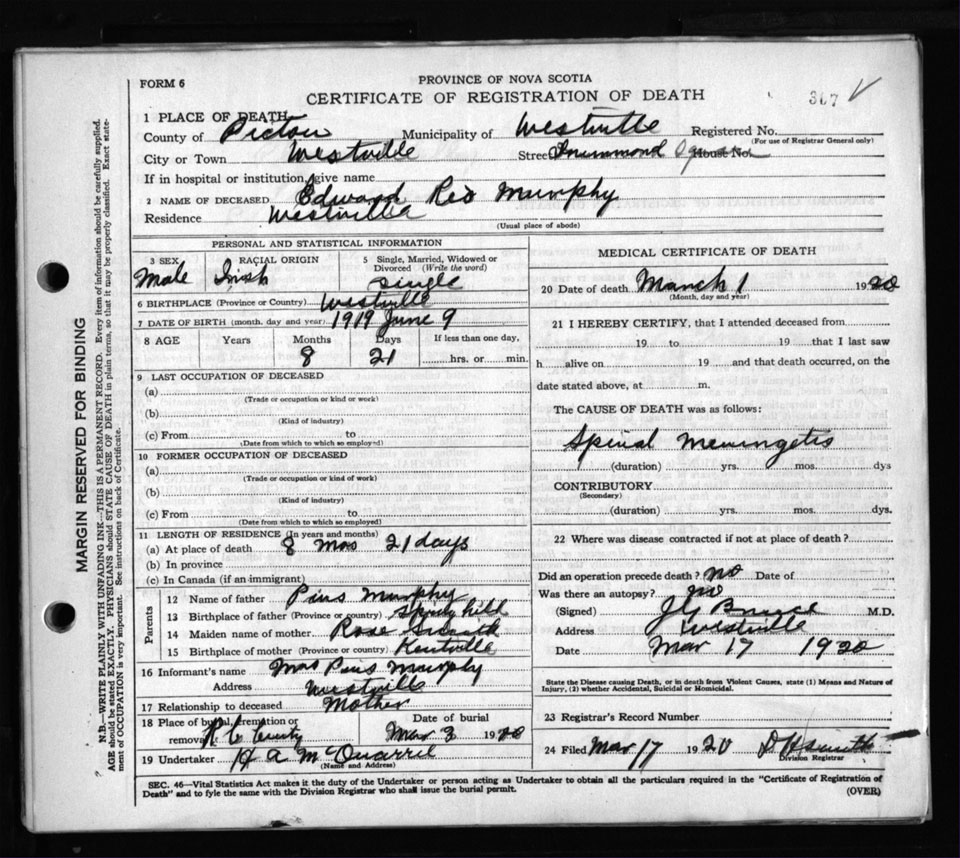 FORM 6
PROVINCE OF NOVA SCOTIA
CERTIFICATE OF REGISTRATION OF DEATH
307
1 PLACE OF DEATH
County of Pictou Municipality of Westville Registered No.
(For use of Registrar General only)
City or Town Westville Street Drummond House No.
If in hospital or institution, give name
2 NAME OF DECEASED Edward Reo Murphy
Residence Westville
(Usual place of abode)
PERSONAL AND STATISTICAL INFORMATION
3 SEX RACIAL ORIGIN 5 Single, Married, Widowed or Divorced (Write the word)
Male Irish Single
6 BIRTHPLACE (Province or Country) Westville
7 DATE OF BIRTH (month, day and year) 1919 June 9
8 AGE Years Months Days If less than one day,
8 21 hrs. or min.
9 LAST OCCUPATION OF DECEASED
(a)
(Trade or occupation or kind or work)
(b)
(Kind of industry)
(c) From to
(Date from which to which so employed)
10 FORMER OCCUPATION OF DECEASED
(a)
(Trade or occupation or kind of work)
(b)
(Kind of industry)
(c) From to
(Date from which to which so employed)
11 LENGTH OF RESIDENCE (In years and months)
(a) At place of death 8 Mos 21 days
(b) In province
(c) In Canada (if an immigrant)
Parents
12 Name of father Pius Murphy
13 Birthplace of father (Province or country) Spring hill
14 Maiden name of mother Rose
15 Birthplace of mother (Province or country) Kentville
16 Informant's name Mrs Pius Murphy
Address Westville
17 Relationship to deceased Mother
18 Place of burial, cremation or removal R C Date of burial Mar 3 1920
19 Undertaker H A McQuarrie
(Name and Address)
MEDICAL CERTIFICATE OF DEATH
20 Date of death March 1 1920
(Month, day and year)
21 I HEREBY CERTIFY, that I attended deceased from
19 to 19 that I last saw
h alive on 19 and that death occurred, on the
date stated above, at m.
The CAUSE OF DEATH was as follows:
Spinal Meningetis
(duration) yrs. mos. dys
CONTRIBUTORY
(Secondary)
(duration) yrs. mos. dys.
22 Where was disease contracted if not at place of death?
Did an operation precede death? no Date of
Was there an autopsy? no
(Signed) J G Bruce M.D.
Address Westville
Date Mar 17 1920
State the Disease causing Death, or in death from Violent Causes, state (1) Means and Nature of
Injury, (2) whether Accidental, Suicidal or Homicidal.
23 Registrar's Record Number
24 Filed Mar 17 1920 D H Smith
Division Registrar
SEC. 46—Vital Statistics Act makes it the duty of the Undertaker or person acting as Undertaker to obtain all the particulars required in the "Certificate of Registration of
Death" and to fyle the same with the Division Registrar who shall issue the burial permit.
(OVER)
MARGIN RESERVED FOR BINDING
N.B.—WRITE PLAINLY WITH UNFADING INK—THIS IS A PERMANENT RECORD. Every item of information should be carefully supplied.
AGE should be stated EXACTLY. PHYSICIANS should STATE CAUSE OF DEATH in plain terms, so that it may be properly classified. Exact state-
ment of OCCUPATION is very important. See instructions on back of Certificate.